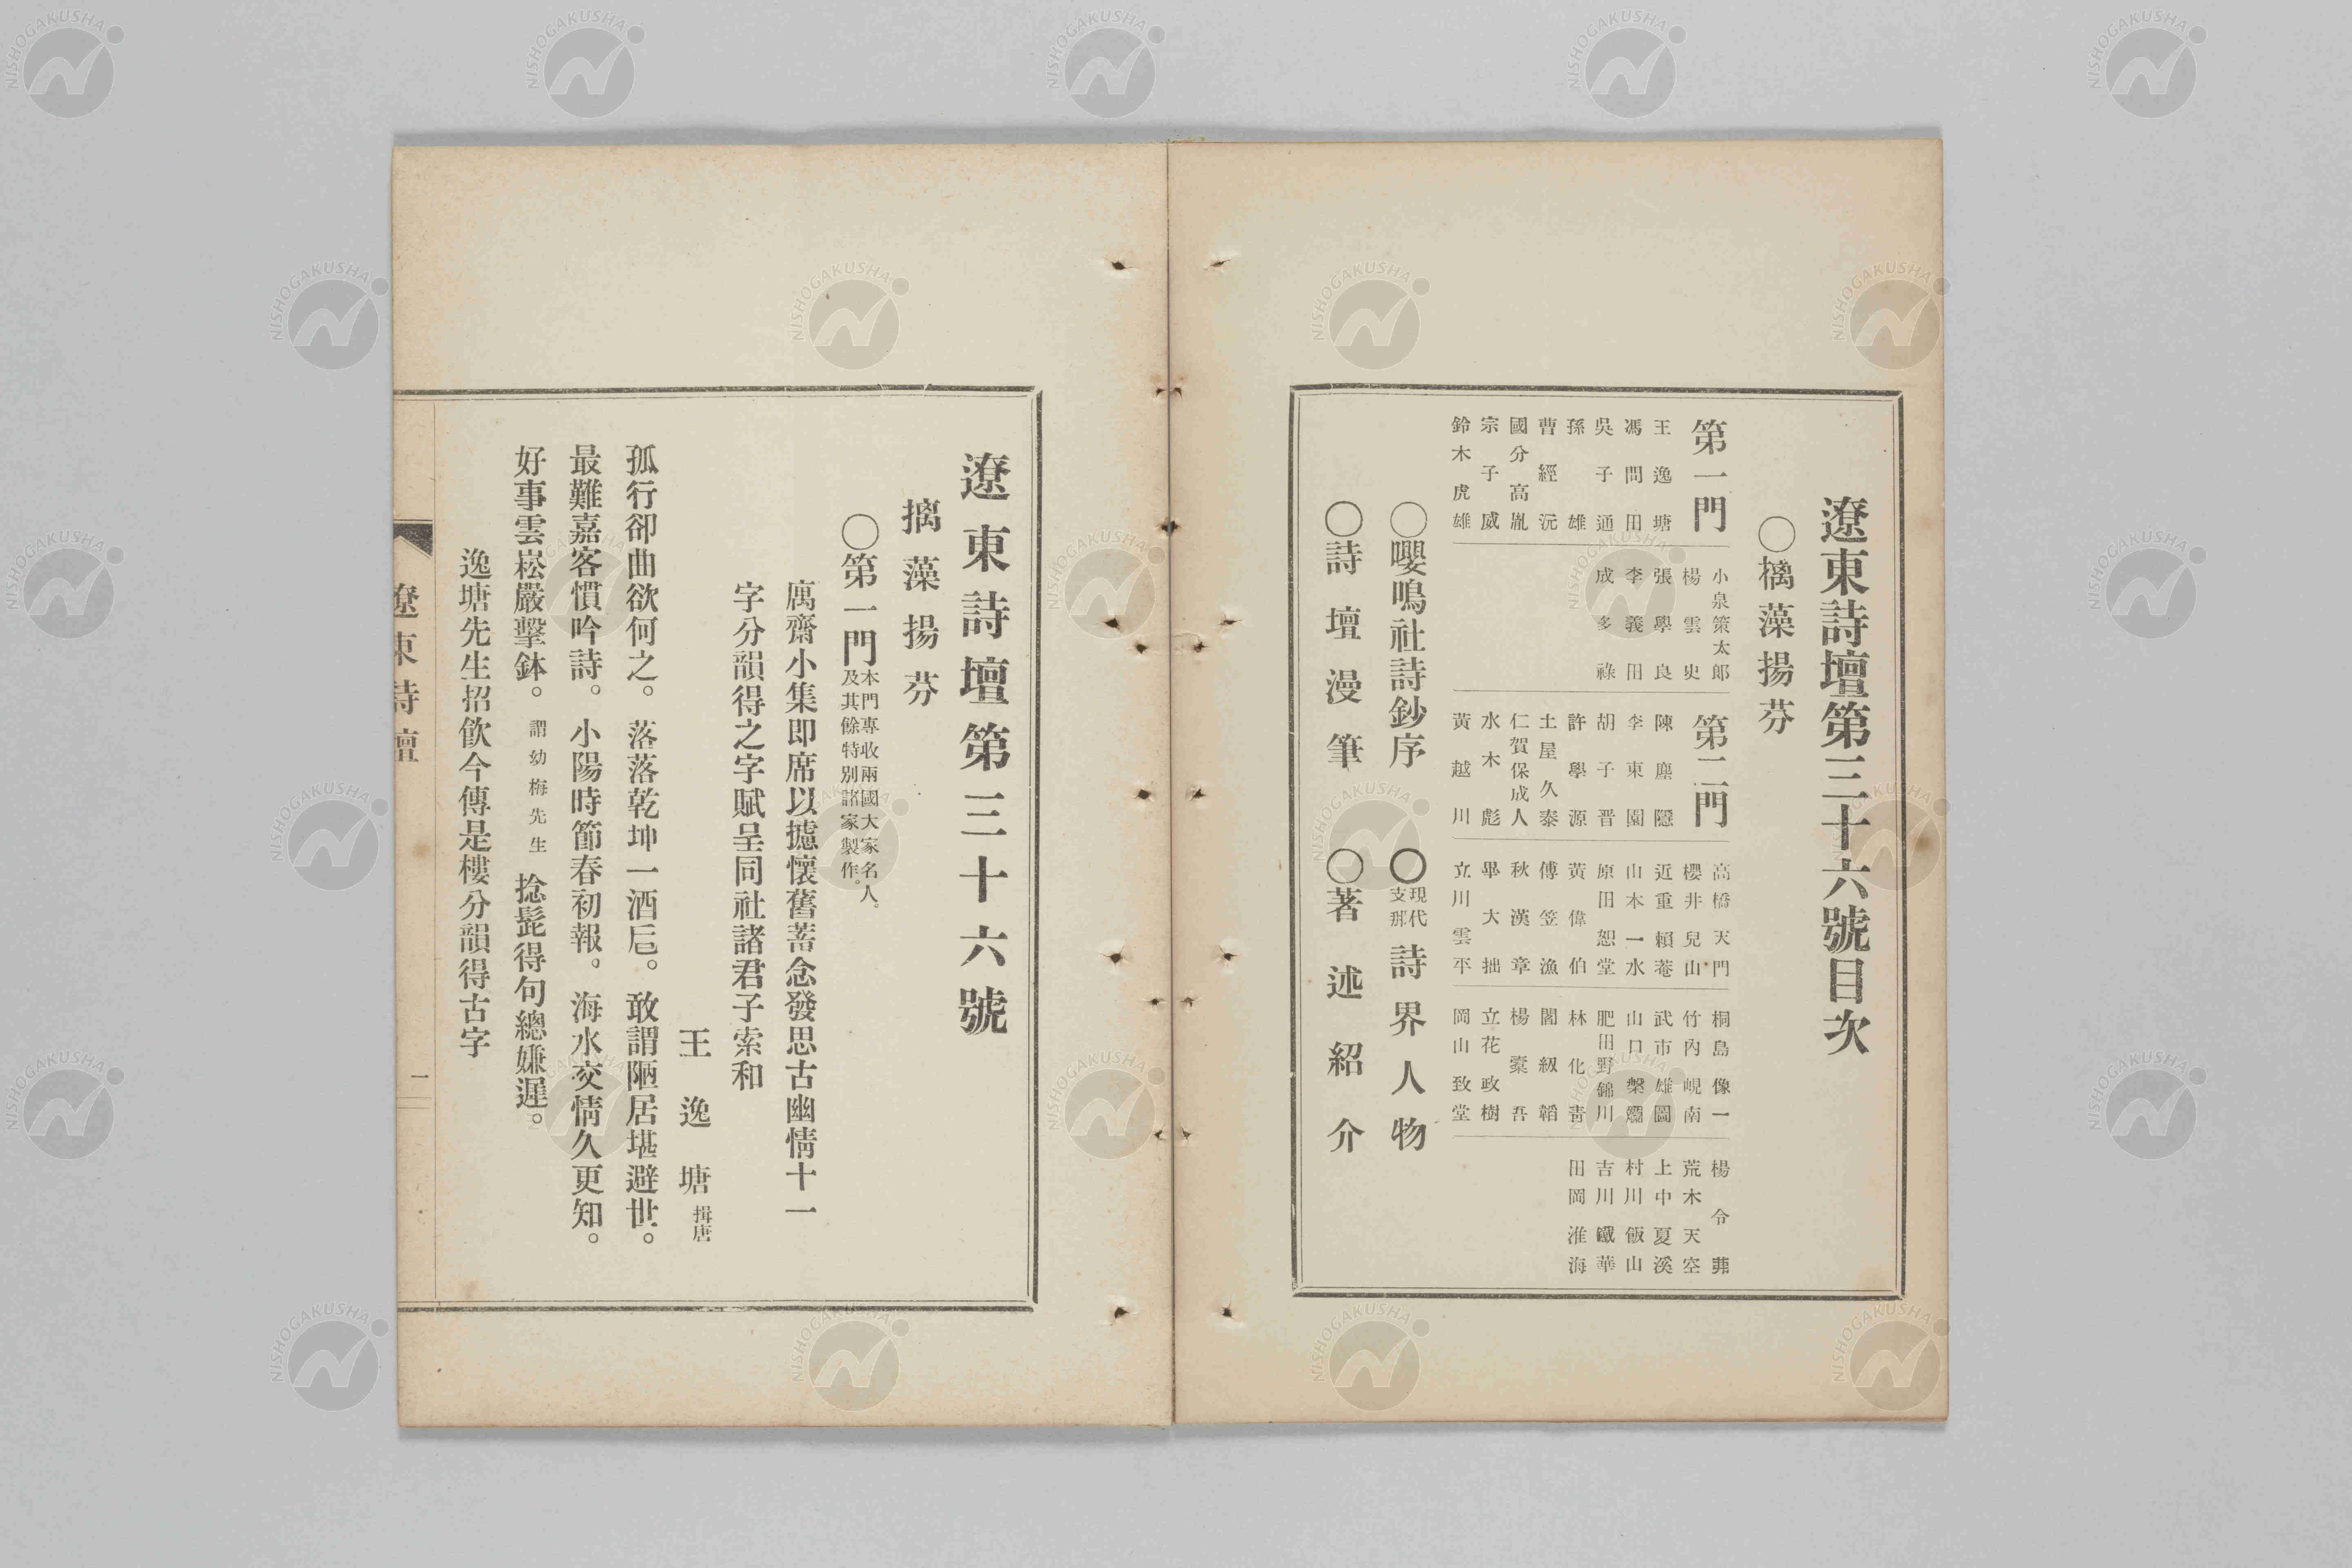 遼東詩壇第三十六號目次
○摛藻揚芬
第一門
王逸塘
馮問田
吳子通
孫雄
曹經沅
國分高胤
宗子威
鈴木虎雄
小泉策太郎
楊雲史
張學良
李義田
成多祿
第二門
陳塵隱
李東園
胡子晋
許學源
土屋久泰
仁賀保成人
水木彪
黃越川
高橋天門
櫻井兒山
近重賴菴
山木一水
原田恕堂
黃偉伯
傅笠漁
秋漢章
畢大拙
立川雲平
桐島像一
竹內峴南
武市雄圖
山口槃㵎
肥田野錦川
林化靑
閻紉韜
楊橐吾
立花政樹
岡山致堂
楊令茀
荒木天空
上中夏溪
村川飯山
吉川鐵華
田岡淮海
○嚶鳴社詩鈔序
○現代支那詩界人物
○詩壇漫筆
○著述紹介
遼東詩壇第三十六號
摛藻揚芬
○第一門 本門專收兩國大家名人。
及其餘特別諸家製作。
厲齋小集即席以攄懷舊蓄念發思古幽情十一
字分韻得之字賦呈同社諸君子索和
王逸塘 揖唐
孤行卻曲欲何之。落落乾坤一酒卮。敢謂陋居堪避世。
最難嘉客慣吟詩。小陽時節春初報。海水交情久更知。
好事雲崧嚴擊鉢。謂幼梅先生 捻髭得句總嫌遲。
逸塘先生招飲今傳是樓分韻得古字
遼東詩壇
一
NISHOGAKUSHA